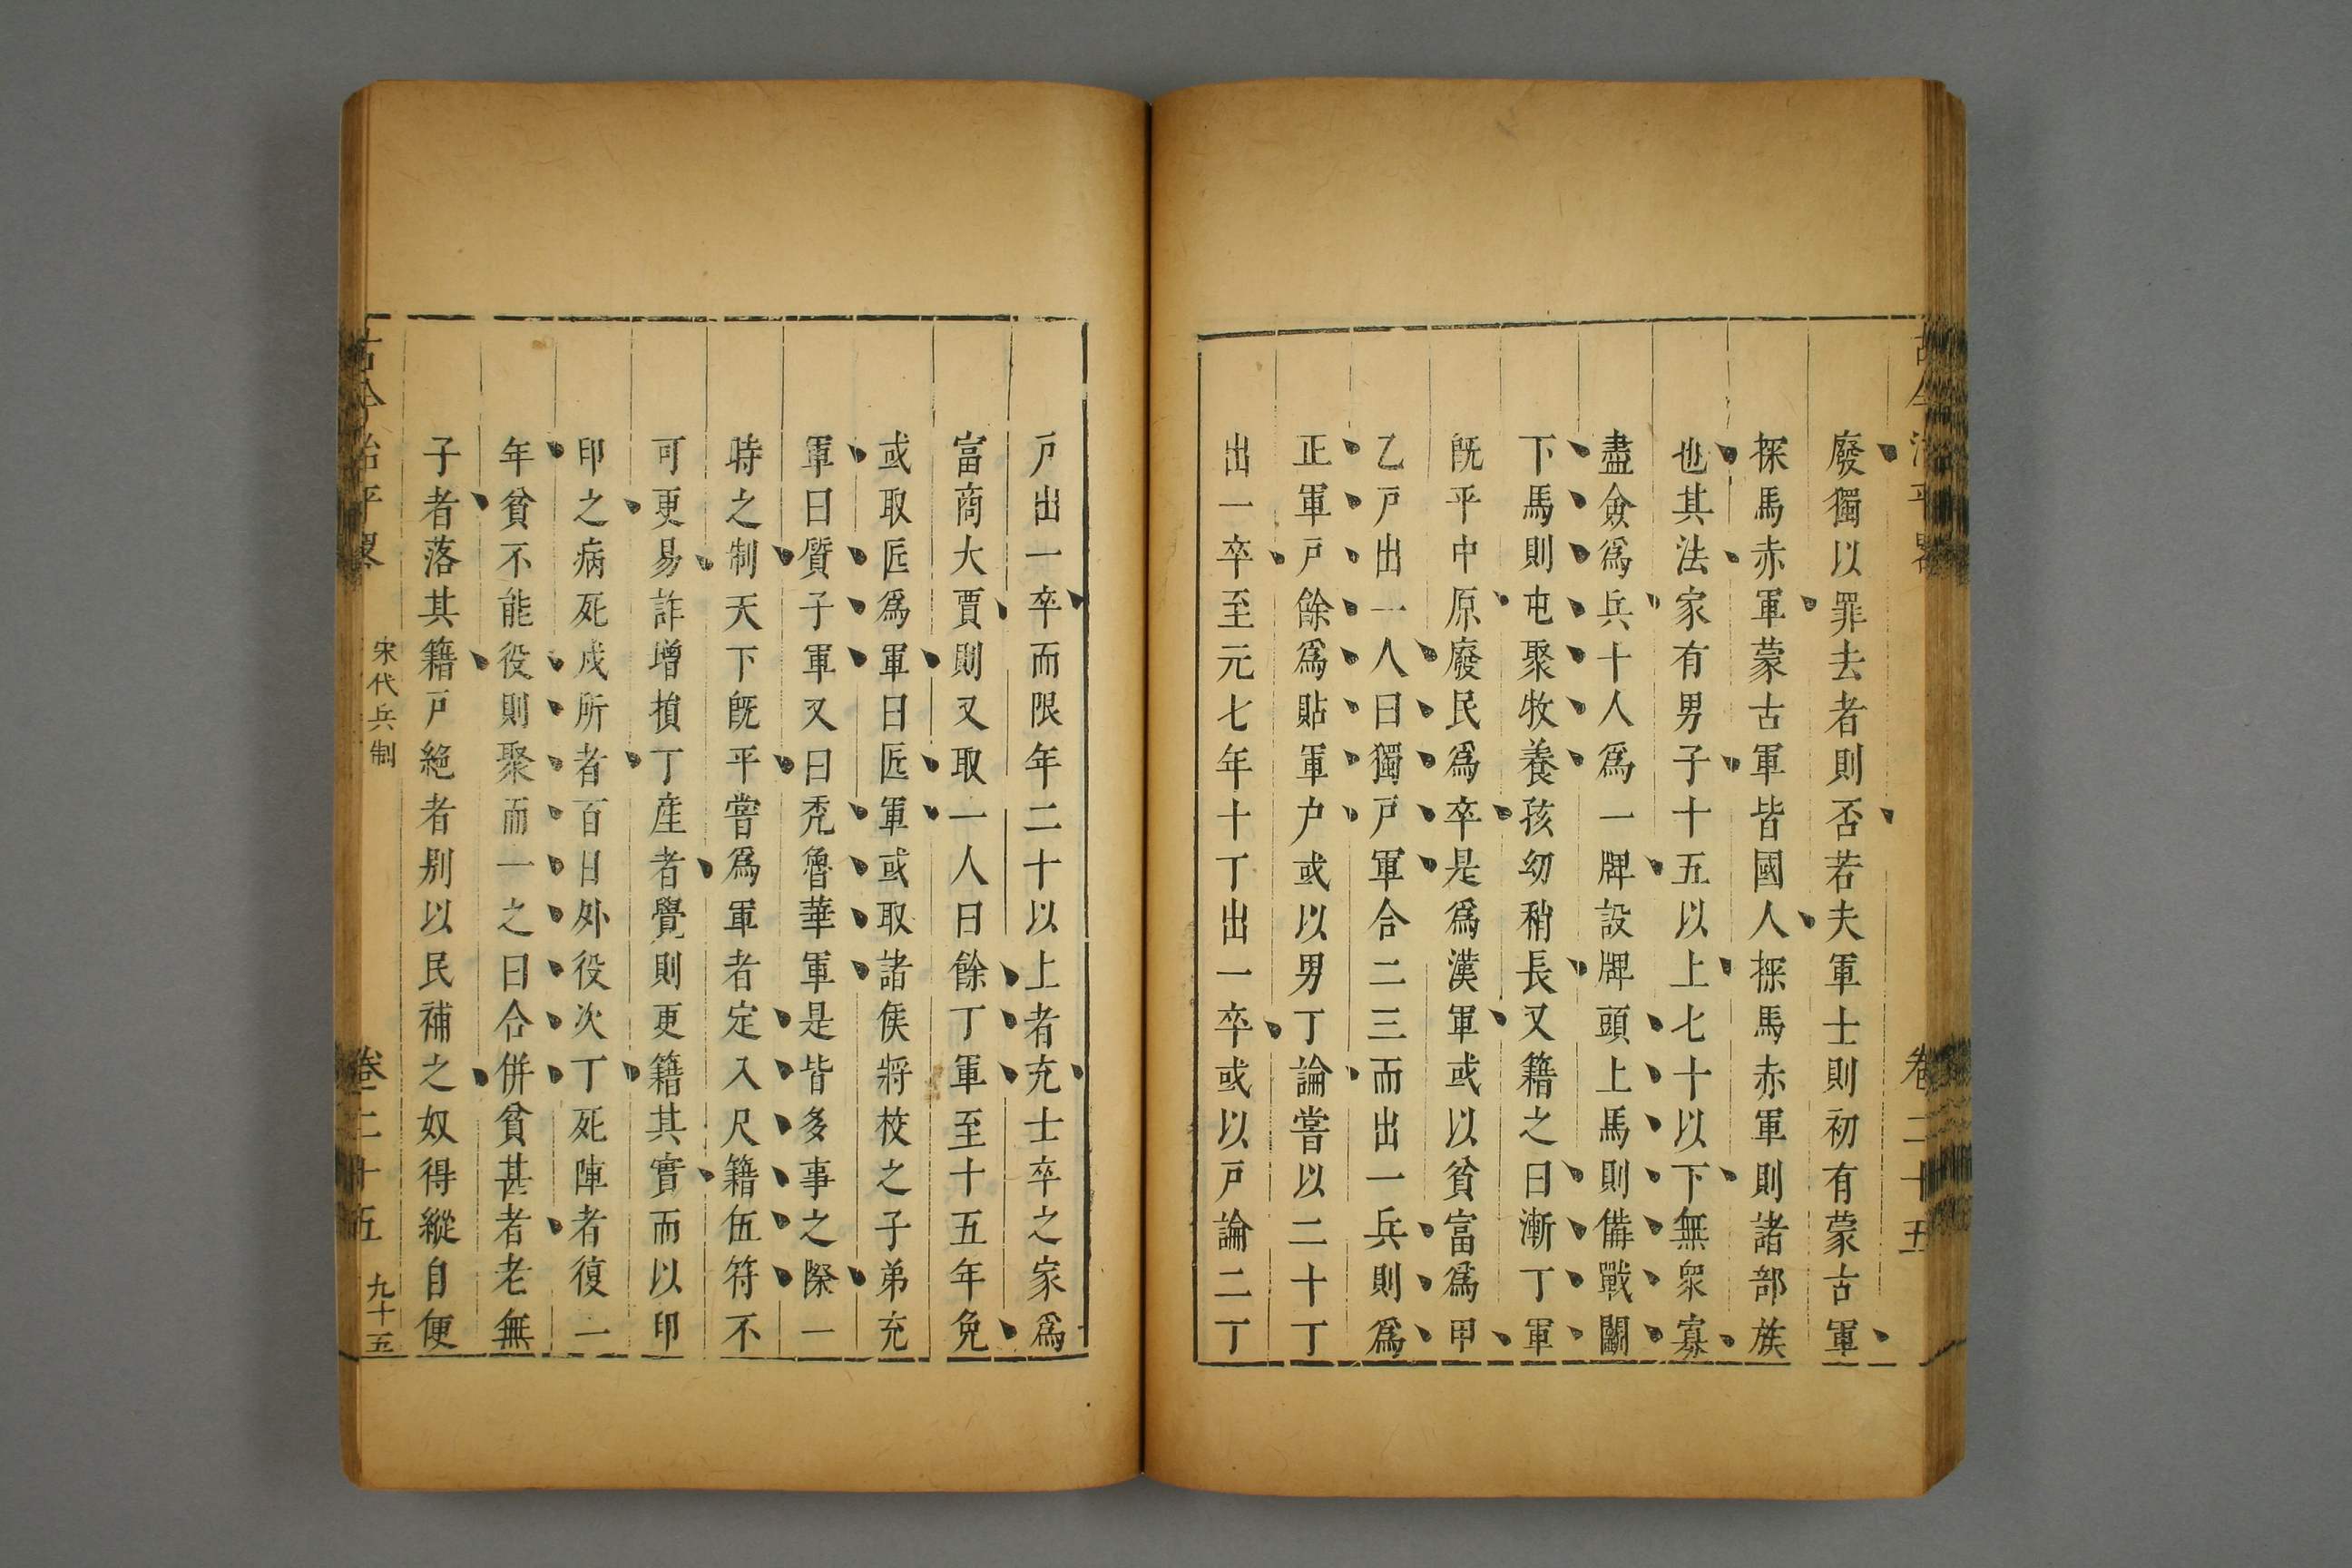 古今治平畧 卷二十五
廢獨以罪去者則否若夫軍士則初有蒙古軍
探馬赤軍蒙古軍皆國人探馬赤軍則諸部族
也其法家有男子十五以上七十以下無衆寡
盡僉爲兵十人爲一牌設牌頭上馬則備戰鬭
下馬則屯聚牧養孩幼稍長又籍之曰漸丁軍
旣平中原廢民爲卒是爲漢軍或以貧富爲甲
乙戸出一人曰獨戸軍合二三而出一兵則爲
正軍戸餘爲貼軍户或以男丁論嘗以二十丁
出一卒至元七年十丁出一卒或以戸論二丁
戸出一卒而限年二十以上者充士卒之家爲
富商大賈則又取一人曰餘丁軍至十五年免
或取匠爲軍曰匠軍或取諸侯將校之子弟充
軍曰質子軍又曰禿魯華軍是皆多事之際一
時之制天下旣平嘗爲軍者定入尺籍伍符不
可更易詐增損丁產者覺則更籍其實而以印
印之病死戍所者百日外役次丁死陣者復一
年貧不能役則聚而一之曰合併貧甚者老無
子者落其籍戸絶者别以民補之奴得縱自便
古今治平畧 宋代兵制 卷二十五 九十五